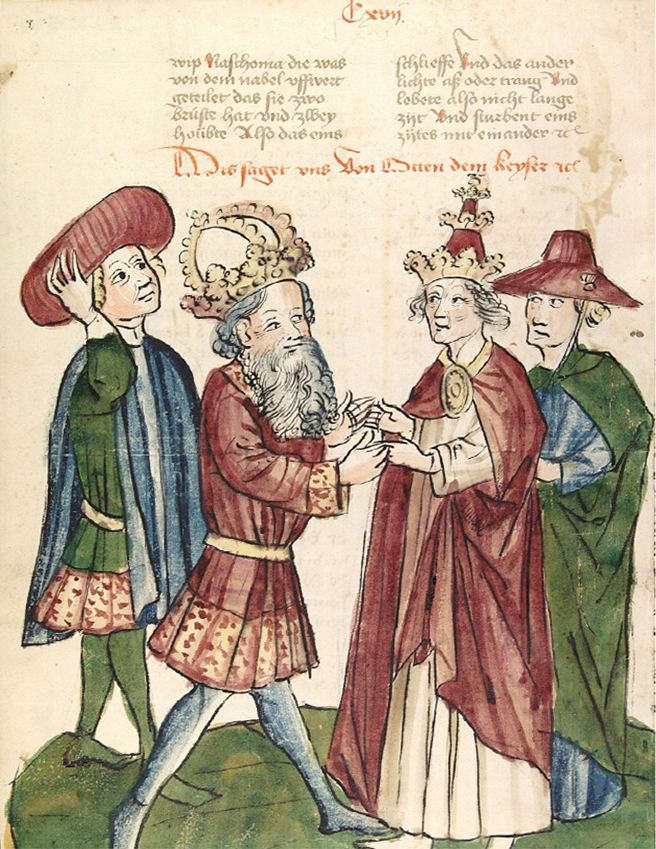 Cxvij.
wip Naschoma die was
von dem nabel vffwert
geteilet das sie zwo
brüste hat vnd zwey
houbte Also das eins
schlieffe Vnd das ander
lichte aß oder trang Vnd
lebete also nicht lange
zyt Vnd sturbent eins
zÿtes mit einander ⁊c
Dis saget vns Von Otten dem keyser ⁊c